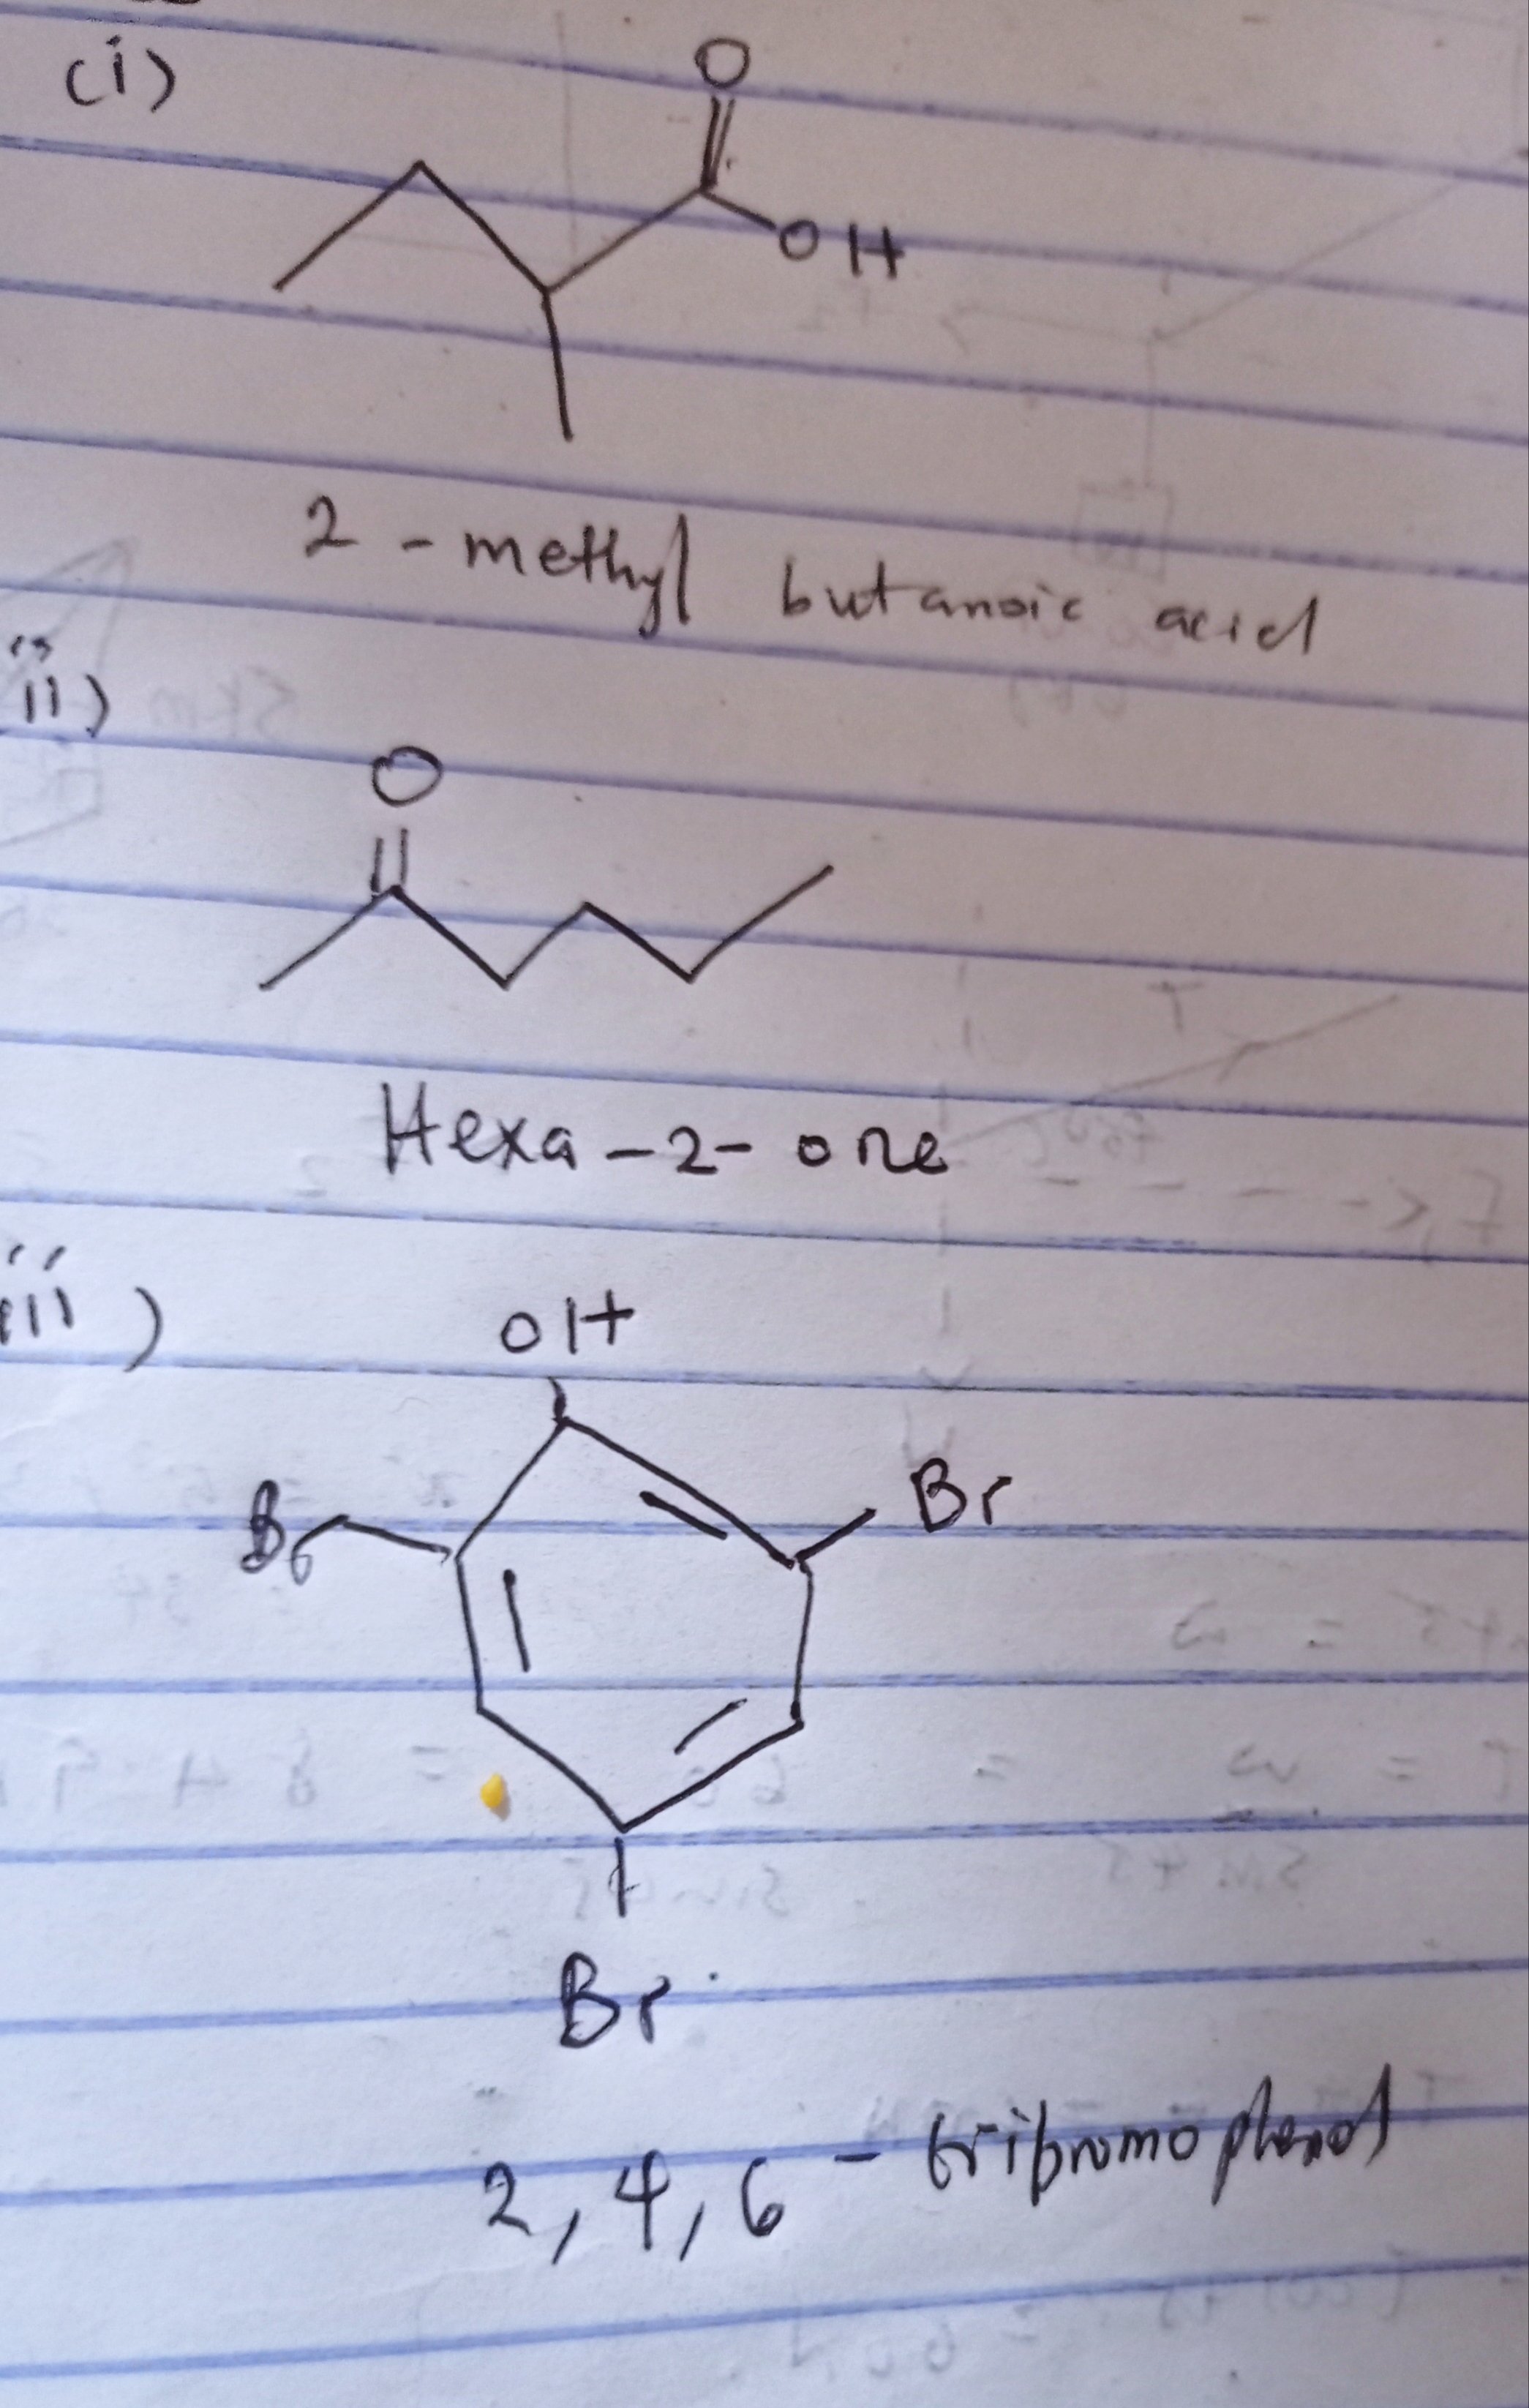 (i)
O
OH
2 - methyl butanoic acid
ii)
O
Hexa - 2 - one
iii)
OH
Br
Br
Br
2, 4, 6 - tribromophenol